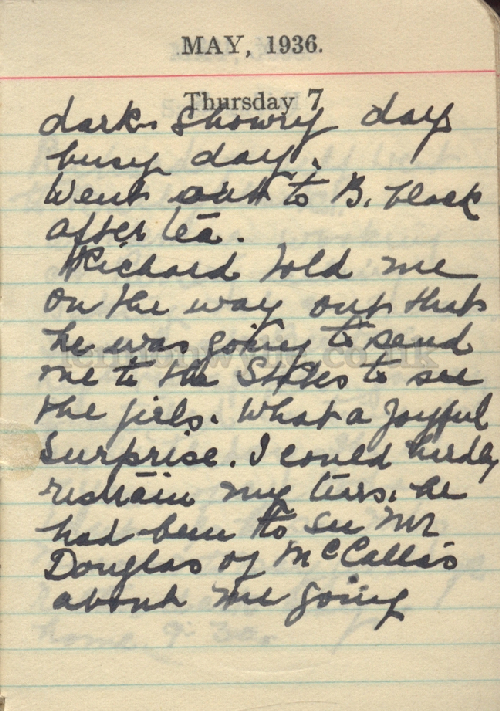 MAY, 1936.
Thursday 7
dark showry day
busy day.
Went out to B. black
after tea.
Richard told me
on the way out that
he was going to send
me to the States to see
the girls. What a Joyful
Surprise. I could hardly
restrain my tears. he
had been to see Mr
Douglas of McCallis
about me going